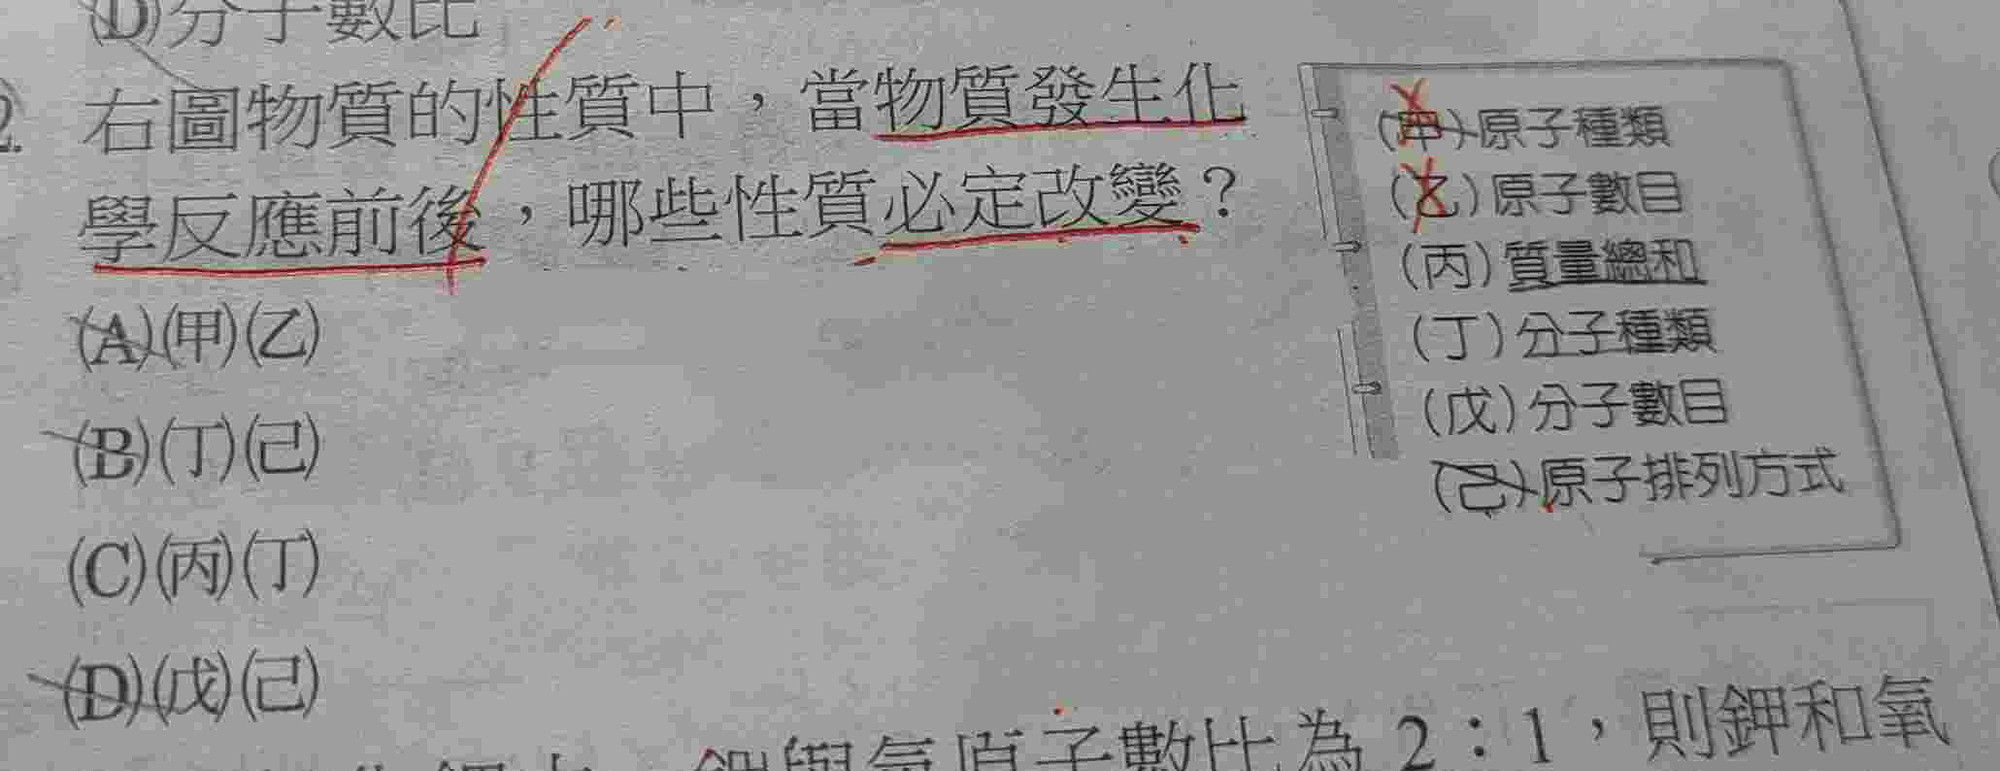 (D)分子數比
2. 右圖物質的性質中，當物質發生化
學反應前後，哪些性質必定改變？
(A)(甲)(乙)
(B)(丁)(己)
(C)(丙)(丁)
(D)(戊)(己)
(甲)原子種類
(乙)原子數目
(丙)質量總和
(丁)分子種類
(戊)分子數目
(己)原子排列方式
原子數比為 2：1，則鉀和氧